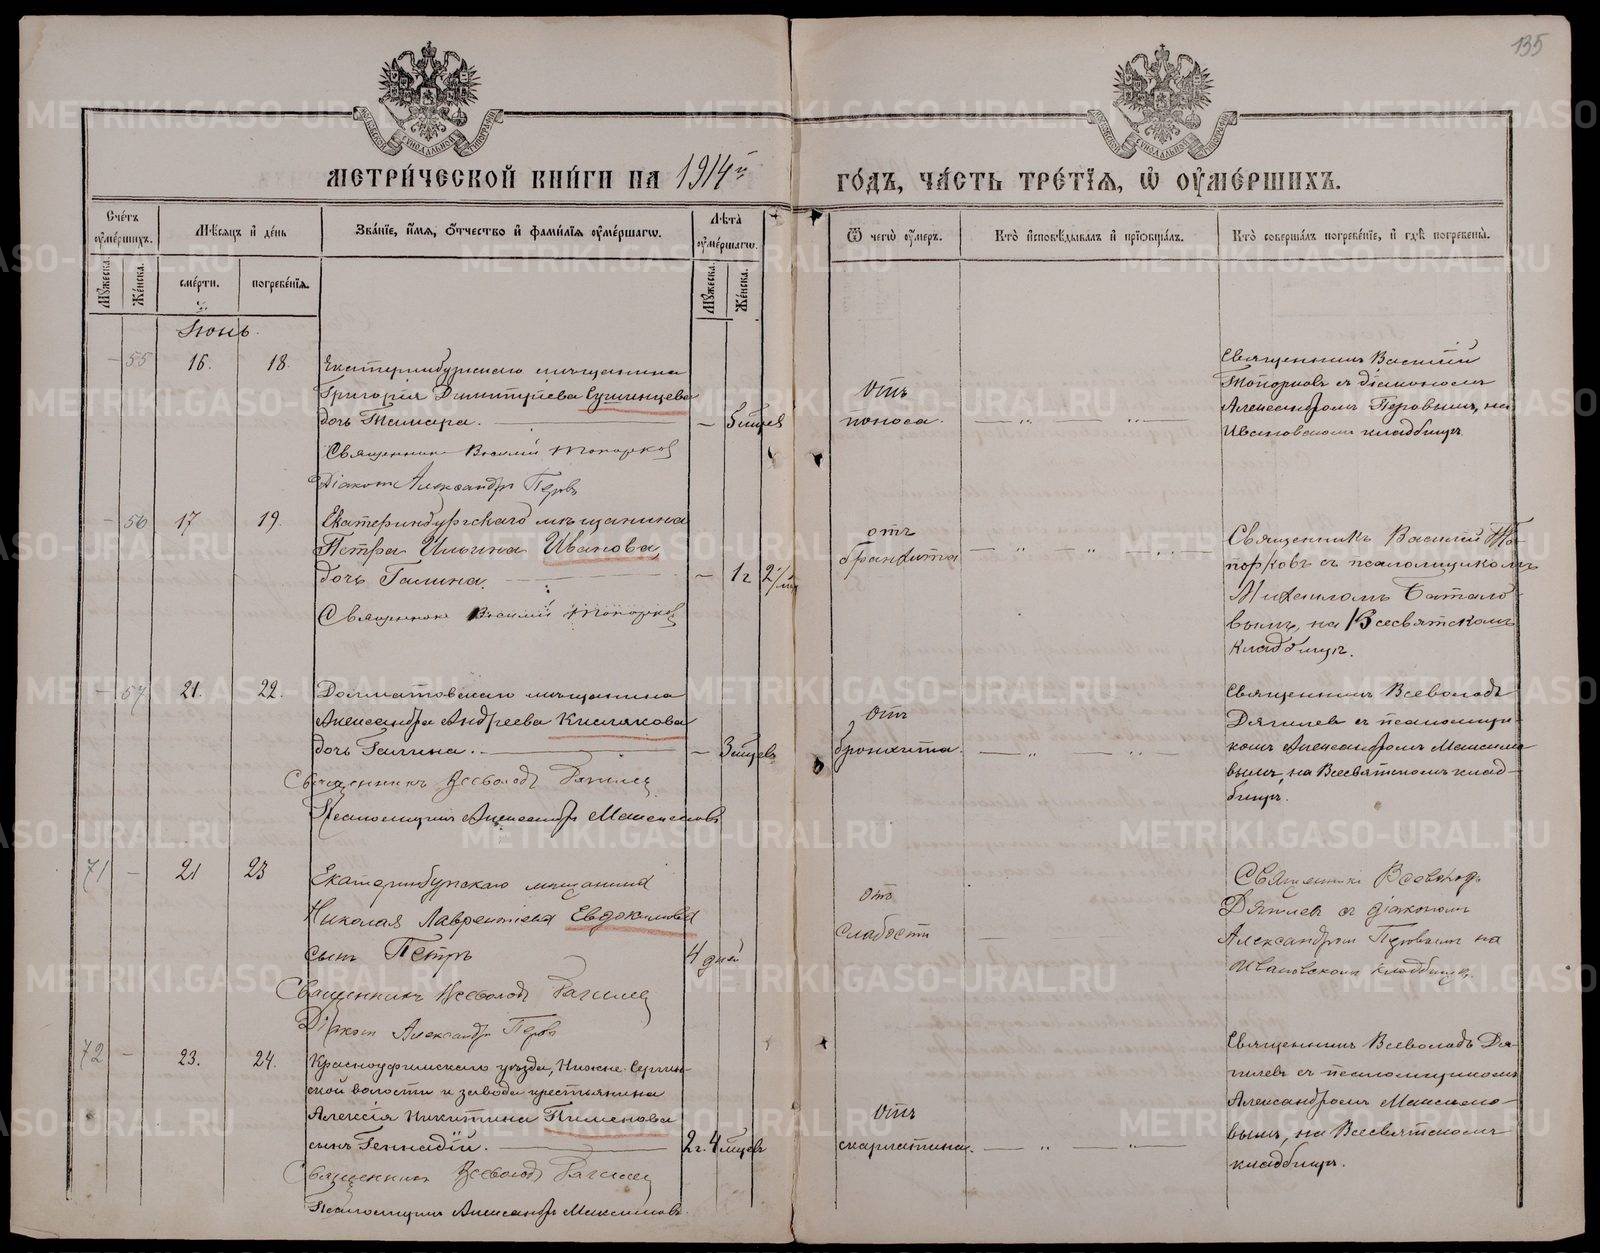 135
МЕТРИЧЕСКОЙ КНИГИ НА 1914й ГОДЪ, ЧАСТЬ ТРЕТІЯ, Ѿ ОУМЕРШИХЪ.
Счетъ оумершихъ.
Мѣсяцъ и день
Званіе, имя, отчество и фамилія оумершагω.
Лѣта оумершагω.
Ѿ чегω оумеръ.
Кто исповѣдывалъ и пріобщалъ.
Кто совершалъ погребеніе, и гдѣ погребены.
Мужеска.
Женска.
смерти.
погребенія.
Мужеска.
Женска.
Іюнь.
- 55 16. 18.
Екатеринбургскаго мѣщанина
Григорія Димитріева Сушинцева
дочь Тамара. - 5 мцев
Священник Василий Топорков
Діакон Александр Перов
отъ
поноса.
Священникъ Василій
Топорковъ с діакономъ
Александромъ Перовымъ, на
Ивановскомъ кладбищѣ.
- 56 17 19.
Екатеринбургскаго мѣщанина
Петра Ильина Иванова
дочь Галина. - 1 г 2 мц
Священник Василий Топорков
отъ
бронхита
Священникъ Василій То-
порковъ съ псаломщикомъ
Михаиломъ Батало-
вымъ, на Всесвятскомъ
кладбищѣ.
- 57 21. 22.
Долматовскаго мѣщанина
Александра Андреева Кислякова
дочь Галина. - 3 мцевъ
Священникъ Всеволодъ Дягилев
Псаломщикъ Александръ Максимовъ
отъ
бронхита.
Священникъ Всеволодъ
Дягилев с псаломщи-
комъ Александромъ Максимо
вымъ, на Всесвятскомъ клад-
бищѣ.
71 - 21 23
Екатеринбургскаго мѣщанина
Николая Лаврентіева Евдокимова
сынъ Петръ 4 дней
Священникъ Всеволод Дягилев
Діакон Александр Перов
отъ
слабости
Священникъ Всеволодъ
Дягилев с діаконом
Александром Перовым на
Ивановском кладбищѣ.
72 - 23. 24.
Красноуфимскаго уѣзда, Нижне-Сергин-
ской волости и завода крестьянина
Алексія Никитина Пименова
сынъ Геннадій. 2 г. 4 мцевъ
Священник Всеволод Дягилев
Псаломщикъ Александръ Максимовъ.
отъ
скарлатина.
Священникъ Всеволодъ Дя-
гилевъ съ псаломщикомъ
Александромъ Максимо-
вымъ, на Всесвятскомъ
кладбищѣ.
METRIKI.GASO-URAL.RU